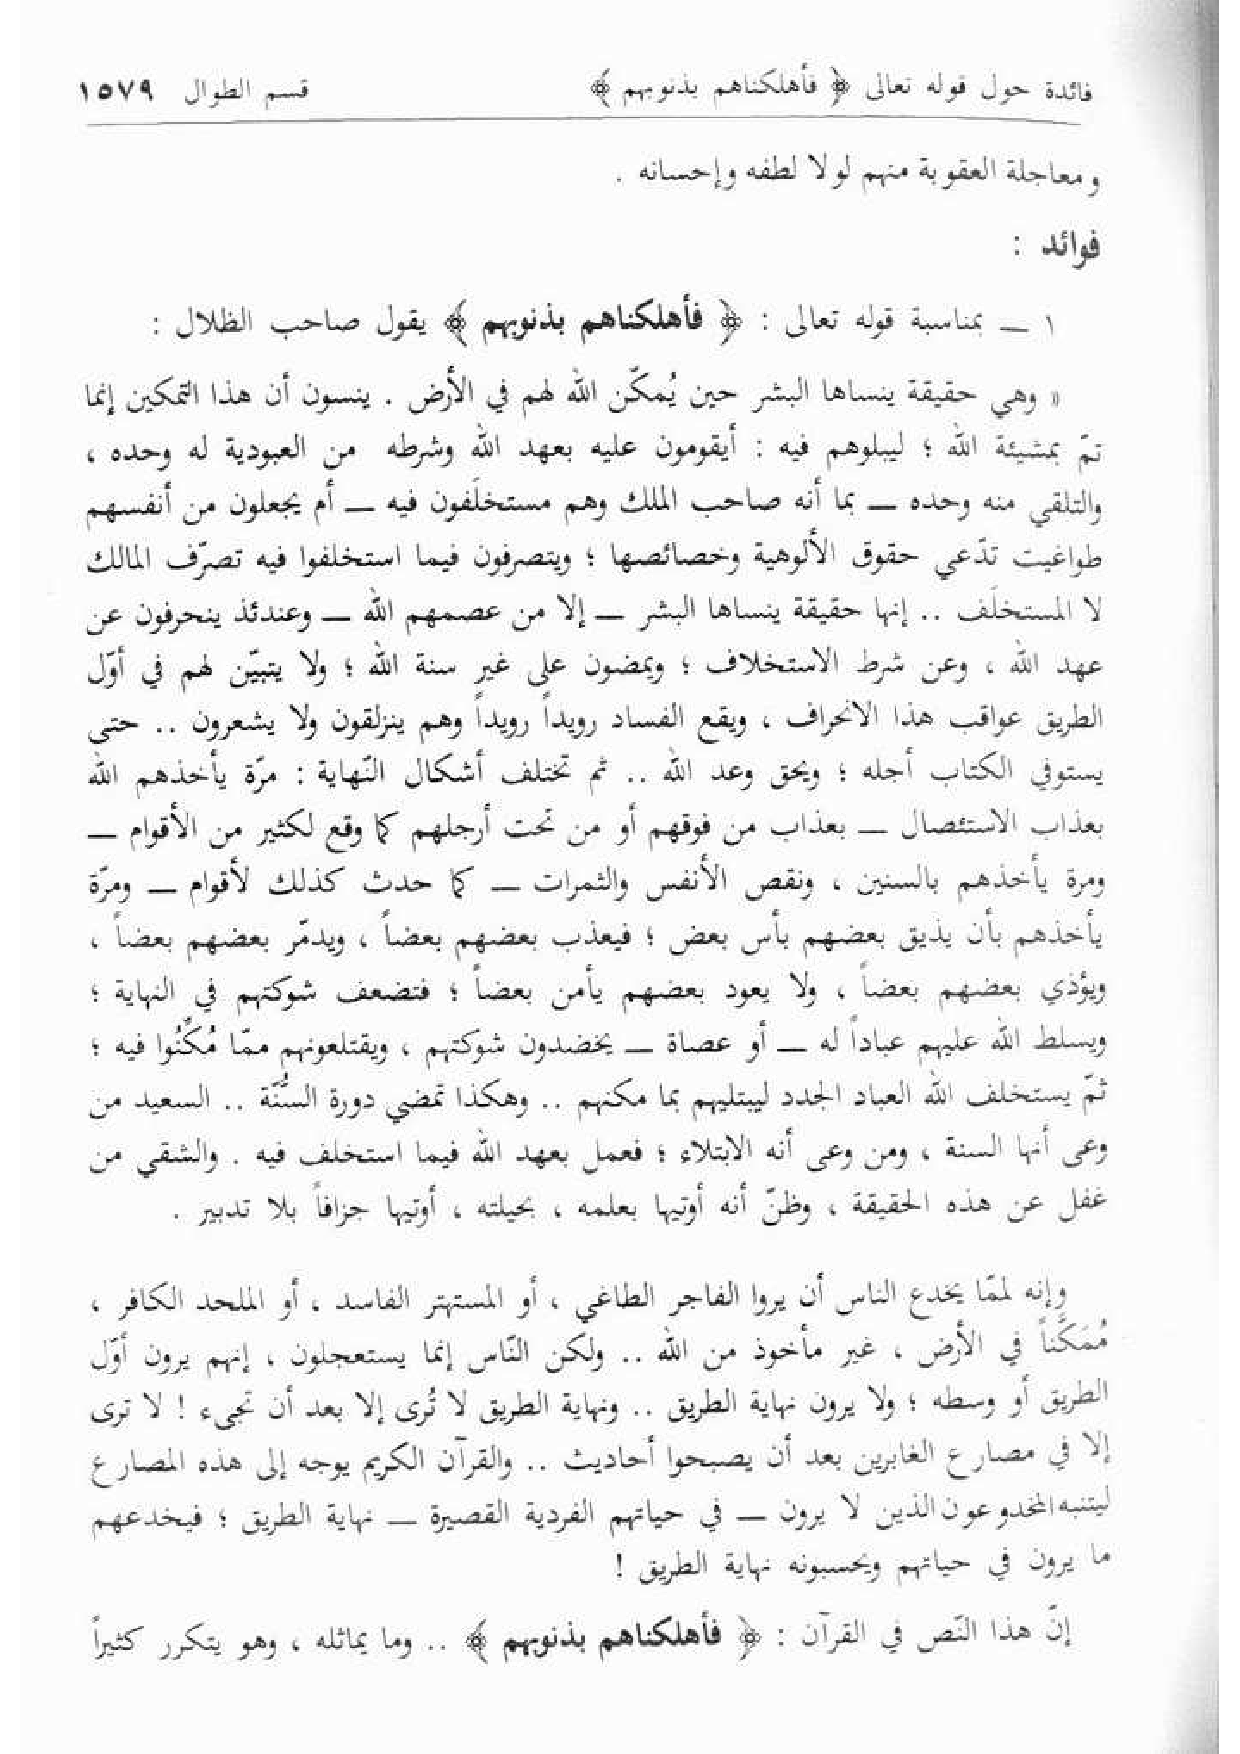 فائدة حول قوله تعالى ﴿ فأهلكناهم بذنوبهم ﴾ قسم الطوال ١٥٧٩
ومعاجلة العقوبة منهم لولا لطفه وإحسانه .
فوائد :
١ ــ بمناسبة قوله تعالى : ﴿ فأهلكناهم بذنوبهم ﴾ يقول صاحب الظلال :
« وهي حقيقة ينساها البشر حين يُمكّن الله لهم في الأرض . ينسون أن هذا التمكين إنما
تمّ بمشيئة الله ؛ ليبلوهم فيه : أيقومون عليه بعهد الله وشرطه من العبودية له وحده ،
والتلقي منه وحده ــ بما أنه صاحب الملك وهم مستخلَفون فيه ــ أم يجعلون من أنفسهم
طواغيت تدّعي حقوق الألوهية وخصائصها ؛ ويتصرفون فيما استخلفوا فيه تصرّف المالك
لا المستخلَف .. إنها حقيقة ينساها البشر ــ إلا من عصمهم الله ــ وعندئذ ينحرفون عن
عهد الله ، وعن شرط الاستخلاف ؛ ويمضون على غير سنة الله ؛ ولا يتبيّن لهم في أوّل
الطريق عواقب هذا الانحراف ، ويقع الفساد رويداً رويداً وهم ينزلقون ولا يشعرون .. حتى
يستوفي الكتاب أجله ؛ ويحق وعد الله .. ثم تختلف أشكال النّهاية : مرّة يأخذهم الله
بعذاب الاستئصال ــ بعذاب من فوقهم أو من تحت أرجلهم كما وقع لكثير من الأقوام ــ
ومرة يأخذهم بالسنين ، ونقص الأنفس والثمرات ــ كما حدث كذلك لأقوام ــ ومرّة
يأخذهم بأن يذيق بعضهم بأس بعض ؛ فيعذب بعضهم بعضاً ، ويدمّر بعضهم بعضاً ،
ويؤذي بعضهم بعضاً ، ولا يعود بعضهم يأمن بعضاً ؛ فتضعف شوكتهم في النهاية ؛
ويسلط الله عليهم عباداً له ــ أو عصاة ــ يخضدون شوكتهم ، ويقتلعونهم ممّا مُكِّنُوا فيه ؛
ثمّ يستخلف الله العباد الجدد ليبتليهم بما مكنهم .. وهكذا تمضي دورة السُّنّة .. السعيد من
وعى أنها السنة ، ومن وعى أنه الابتلاء ؛ فعمل بعهد الله فيما استخلف فيه . والشقي من
غفل عن هذه الحقيقة ، وظنّ أنه أوتيها بعلمه ، بحيلته ، أوتيها جزافاً بلا تدبير .
وإنه لممّا يخدع الناس أن يروا الفاجر الطاغي ، أو المستهتر الفاسد ، أو الملحد الكافر ،
مُمَكَّناً في الأرض ، غير مأخوذ من الله .. ولكن النّاس إنما يستعجلون ، إنهم يرون أوّل
الطريق أو وسطه ؛ ولا يرون نهاية الطريق .. ونهاية الطريق لا تُرى إلا بعد أن تجيء ! لا ترى
إلا في مصارع الغابرين بعد أن يصبحوا أحاديث .. والقرآن الكريم يوجه إلى هذه المصارع
ليتنبه المخدوعون الذين لا يرون ــ في حياتهم الفردية القصيرة ــ نهاية الطريق ؛ فيخدعهم
ما يرون في حياتهم ويحسبونه نهاية الطريق !
إنّ هذا النّص في القرآن : ﴿ فأهلكناهم بذنوبهم ﴾ .. وما يماثله ، وهو يتكرر كثيراً